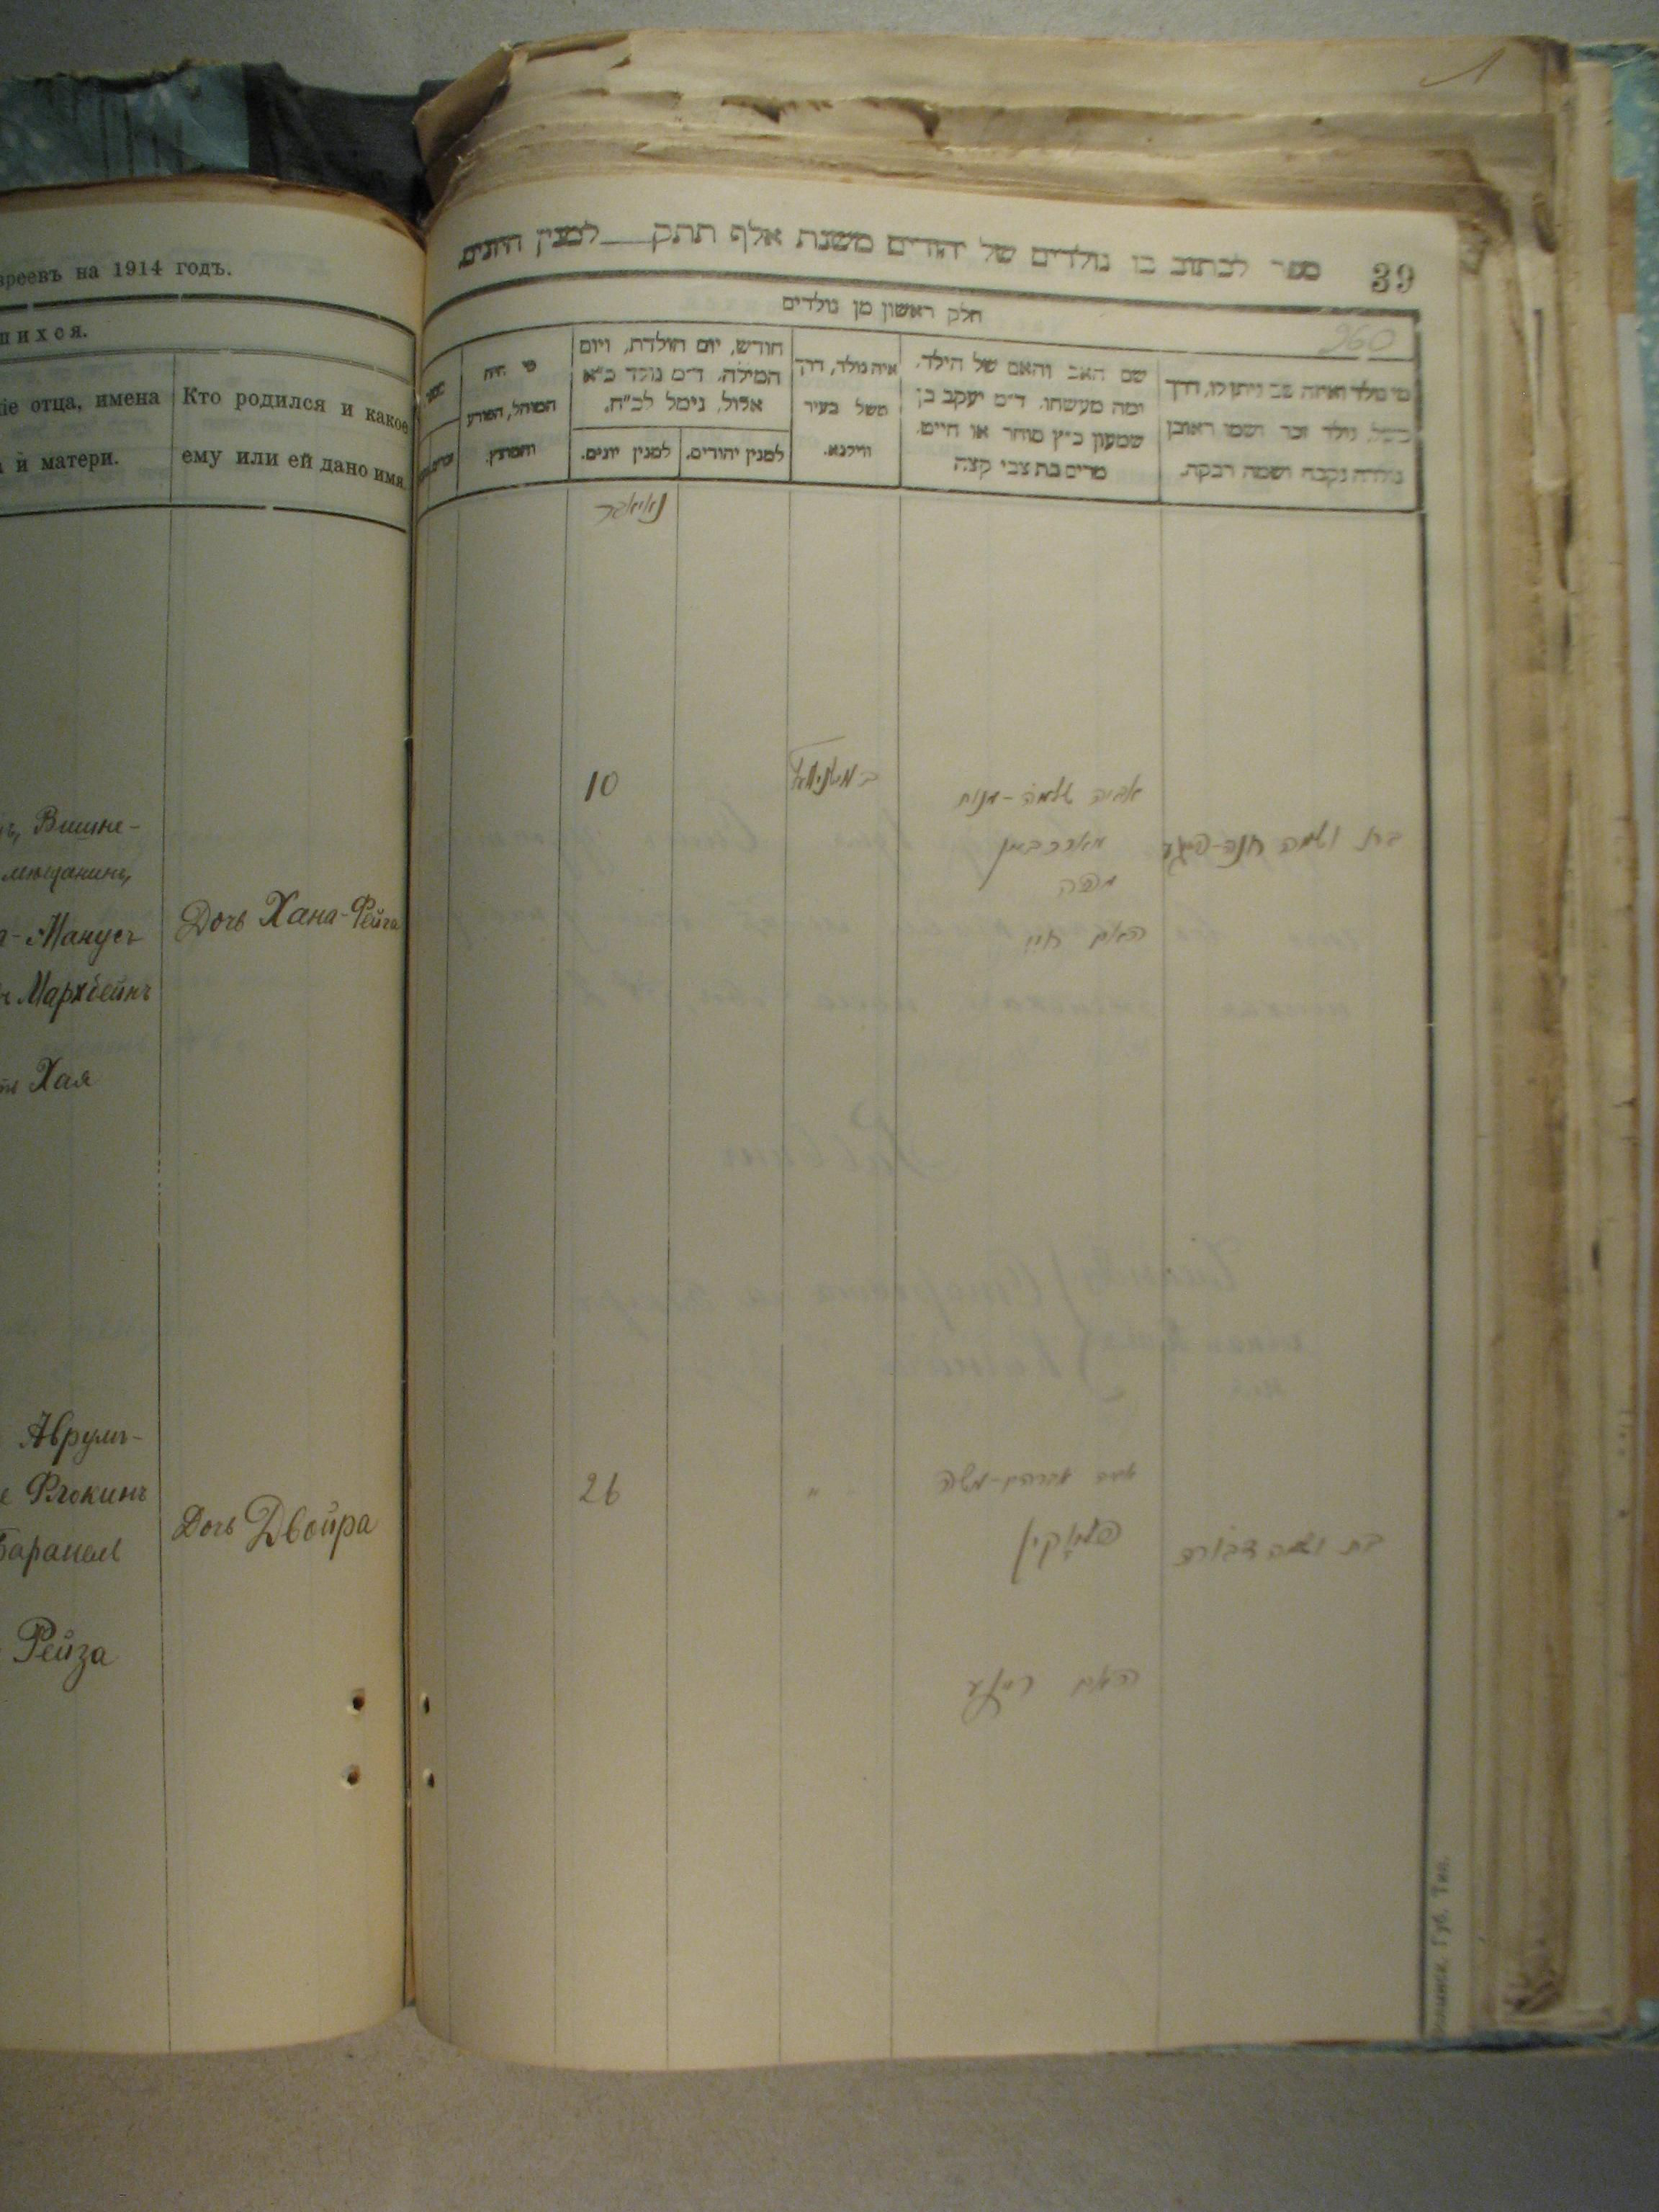 евреевъ на 1914 годъ.
шихся.
ніе отца, имена
и матери.
Кто родился и какое
ему или ей дано имя.
Вишне-
мещанинъ,
-Манусъ
Мархбейнъ
Хая
Дочь Хана-Фейга
Аврумъ-
Флокинъ
Рейза
Дочь Двойра
39
ספר לכתוב בו נולדים של יהודים משנת אלף תתק__למנין היונים
960
חלק ראשון מן נולדים
מי נולד ואיזה שם ניתן לו, דרך
משל, נולד זכר ושמו ראובן
נולדה נקבה ושמה רבקה.
שם האב והאם של הילד,
ומה מעשהו. ד״מ יעקב בן
שמעון כ״ץ סוחר או חייט.
מרים בת צבי קצה
איה נולד, דרך
משל בעיר
ווילנא.
חודש, יום הולדת, ויום
המילה. ד״מ נולד כ״א
אלול, נימל לכ״ח.
למנין יהודים.
למנין יונים.
מי היה
המוהל, הפורע
והמוצץ.
נאיאבר
10
אביה שלמה-מנוח
מארכביין
האם חיי
בת ושמה חנה-פייגע
26
"
אביה אברהם-משה
פלאקין
האם רייזע
בת ושמה דבורה
Губ. Тип.